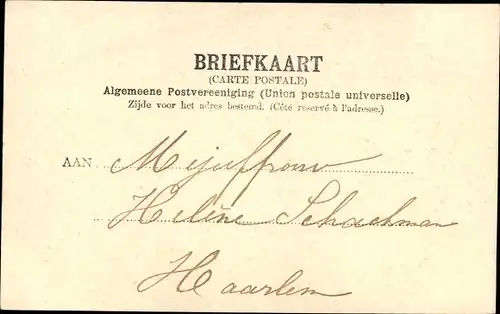 BRIEFKAART
(CARTE POSTALE)
Algemeene Postvereeniging (Union postale universelle)
Zijde voor het adres bestemd. (Côté réservé à l'adresse.)
AAN Mejuffrouw
Helène Schachman
Haarlem